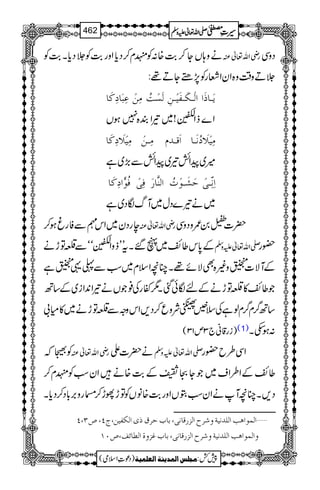 سیرتِ مصطفیٰ صلی اللہ تعالیٰ علیہ وسلم 462
دوسی رضی اللہ تعالیٰ عنہ نے وہاں جا کر بت خانہ کو منہدم کردیا اور بت کو جلا دیا۔ بت کو
جلاتے وقت وہ ان اشعار کو پڑھتے جاتے تھے:
یَـا ذَا الْـكَـفَّـیْنِ لَسْتُ مِنْ عِبَادِكَا
اے ذالکفین! میں تیرا بندہ نہیں ہوں
مِیْلَادُنَا اَقْدَمُ مِنْ مِیْلَادِكَا
میری پیدائش تیری پیدائش سے بڑی ہے
اِنِّیْ حَشَوْتُ النَّارَ فِیْ فُؤَادِكَا
میں نے تیرے دل میں آگ لگا دی ہے
حضرت طفیل بن عمرو دوسی رضی اللہ تعالیٰ عنہ چار دن میں اس مہم سے فارغ ہو کر
حضور صلی اللہ تعالیٰ علیہ وسلم کے پاس طائف میں پہنچ گئے۔ یہ ’’ذوالکفین‘‘ سے قلعہ توڑنے
کے آلات منجنیق وغیرہ بھی لائے تھے۔ چنانچہ اسلام میں سب سے پہلی یہی منجنیق ہے
جو طائف کا قلعہ توڑنے کے لئے لگائی گئی۔ مگر کفار کی فوجوں نے تیر اندازی کے ساتھ
ساتھ گرم گرم لوہے کی سلاخیں پھینکنی شروع کردیں اس وجہ سے قلعہ توڑنے میں کامیابی
نہ ہوسکی۔ (1) (زرقانی ج۳ ص۳۱)
اسی طرح حضور صلی اللہ تعالیٰ علیہ وسلم نے حضرت علی رضی اللہ تعالیٰ عنہ کو بھیجا کہ
طائف کے اطراف میں جو جا بجا ثقیف کے بت خانے ہیں ان سب کو منہدم کر
دیں۔ چنانچہ آپ نے ان سب بتوں اور بت خانوں کو توڑ پھوڑ کر مسمار و برباد کردیا۔
......المواهب اللدنية وشرح الزرقاني، باب حرق ذی الکفین، ج٤، ص٤٠٣
والمواهب اللدنية وشرح الزرقاني، باب غزوة الطائف، ص١٠
پیش کش: مجلس المدینة العلمیة (دعوتِ اسلامی)